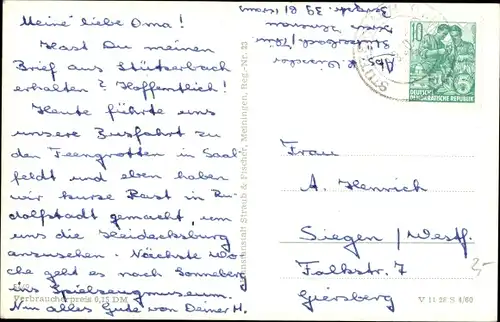 Meine liebe Oma!
Hast Du meinen
Brief aus Stützerbach
erhalten? Hoffentlich!
Heute führte uns
unsere Busfahrt zu
den Feengrotten in Saal-
feldt und eben haben
wir kurze Rast in Ru-
dolfstadt gemacht, um
uns die Heidecksburg
anzusehen. Nächste Wo-
che geht es nach Sonneberg
ins Spielzeugmuseum.
Nun alles Gute von Deiner H.
Verbraucherpreis 0,15 DM
Kunstanstalt Straub & Fischer, Meiningen, Reg.-Nr. 33
Abs.
Stützerbach/Thür.
10
DEUTSCHE
DEMOKRATISCHE REPUBLIK
Frau
A. Henrich
Siegen/Westf.
Falkstr. 7
Giersberg
V 11 26 S 4/60
2,-